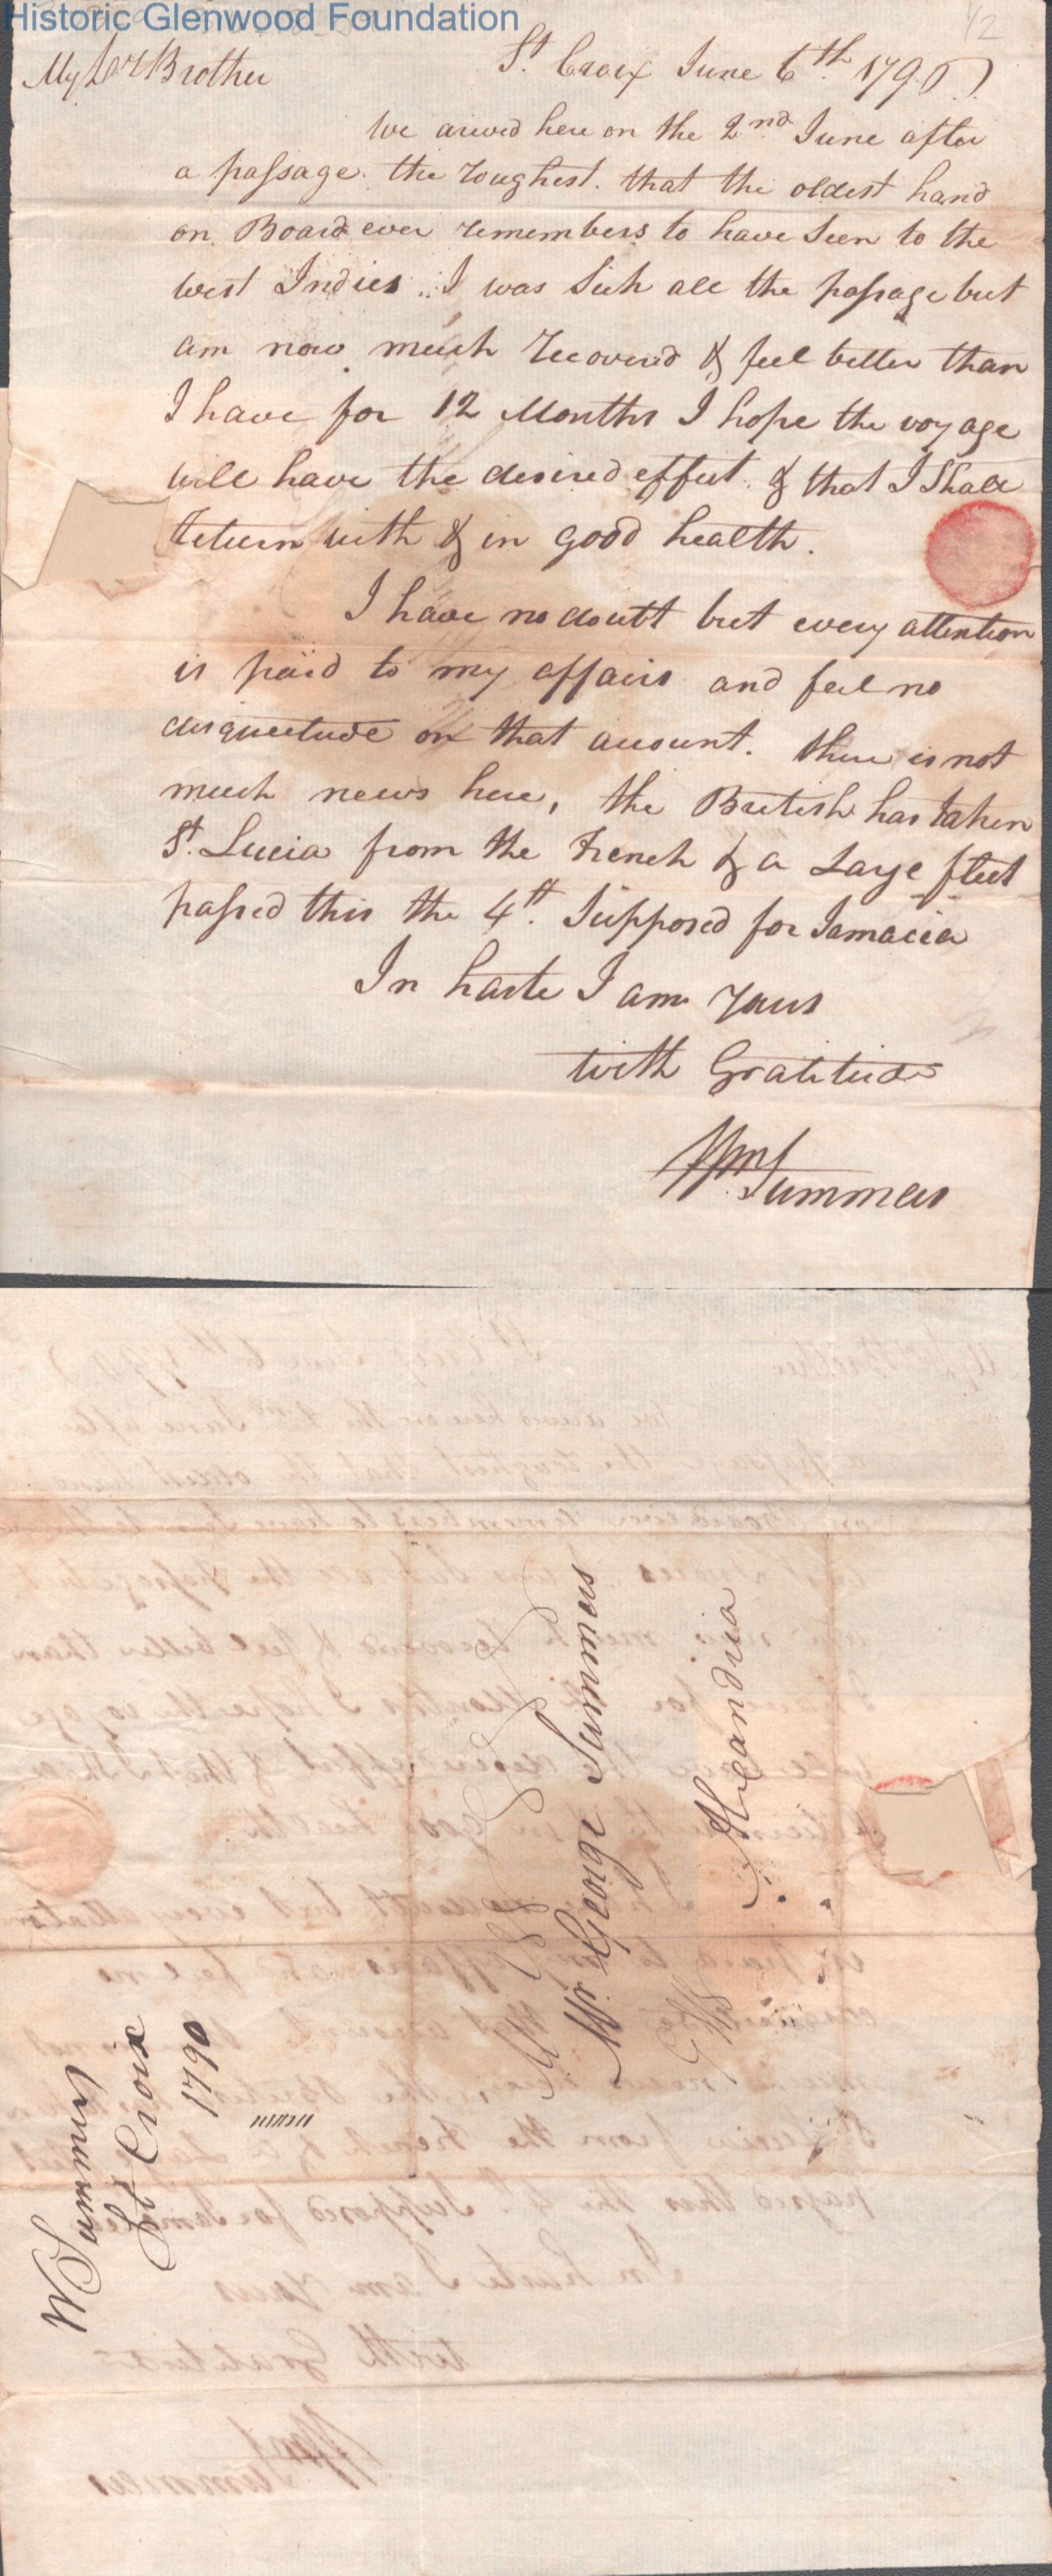 Historic Glenwood Foundation
1/2
My Dr Brother
St. Croix June 6th 1796
We arived here on the 2nd June after
a passage the roughest that the oldest hand
on Board ever remembers to have seen to the
west Indies. I was Sick all the passage but
am now much recovered & feel better than
I have for 12 Months I hope the voyage
will have the desired effect. & that I Shall
return with & in good health.
I have no doubt but every attention
is paid to my affairs and feel no
disquietude on that account. there is not
much news here, the British has taken
St. Lucia from the French & a Large fleet
passed this the 4th. Supposed for Jamacia
In haste I am yours
with Gratitude
Wm Summers
Mr. George Summers
Alexandria
W Summers
St Croix
1790